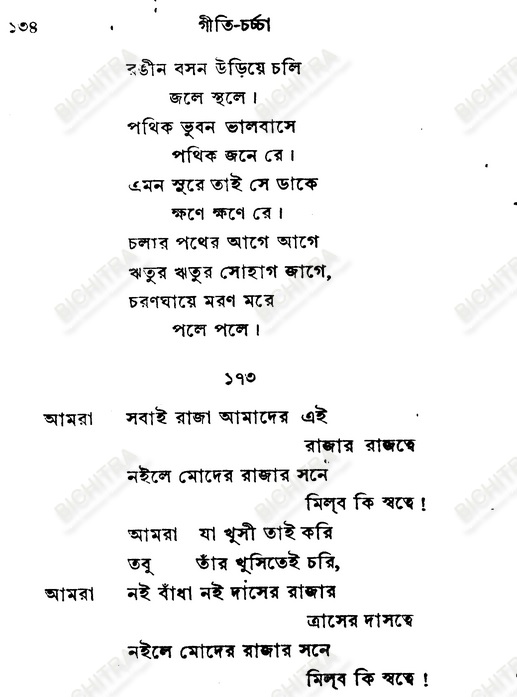 ১৩৪ গীতি-চর্চ্চা
রঙীন বসন উড়িয়ে চলি
জলে স্থলে।
পথিক ভুবন ভালবাসে
পথিক জনে রে।
এমন সুরে তাই সে ডাকে
ক্ষণে ক্ষণে রে।
চলার পথের আগে আগে
ঋতুর ঋতুর সোহাগ জাগে,
চরণঘায়ে মরণ মরে
পলে পলে।
১৭৩
আমরা সবাই রাজা আমাদের এই
রাজার রাজত্বে
নইলে মোদের রাজার সনে
মিল্‌ব কি স্বত্বে!
আমরা যা খুসী তাই করি
তবু তাঁর খুসিতেই চরি,
আমরা নই বাঁধা নই দাসের রাজার
ত্রাসের দাসত্বে
নইলে মোদের রাজার সনে
মিল্‌ব কি স্বত্বে!
BICHITRA